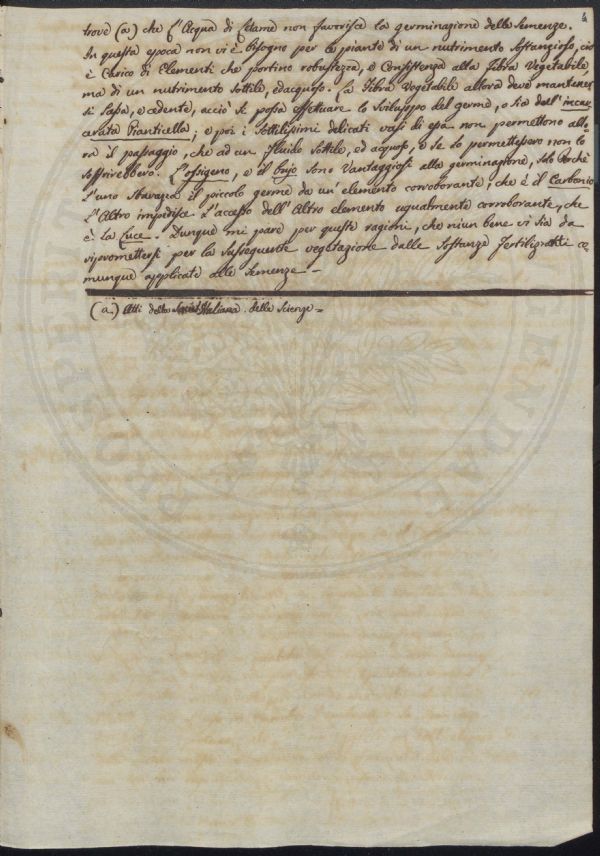 4
trovò (a) che l'Acqua di Letame non favorisce la germinazione delle Semenze.
In questa epoca non vi è bisogno per le piante di un nutrimento Sostanzioso, cio
è Carico di Elementi che portino robustezza, e Consistenza alla Fibra Vegetabile,
ma di un nutrimento Sottile, ed acquoso. La Fibra Vegetabile allora deve mantener
si Lassa, e cedente, acciò si possa effettuare lo Sviluppo del germe, o sia dell'incar
cerata Pianticella; e poi i Sottilissimi delicati vasi di essa non permettono allo
ra il passaggio, che ad un fluido Sottile, ed acquoso, e se lo permettessero non lo
Soffrirebbero. L'ossigeno, e il bujo sono Vantaggiosi alla germinazione, Solo perchè
L'uno il piccolo germe da un'elemento corroborante, che è il Carbonio
L'Altro impedisce L'accesso dell'Altro elemento ugualmente corroborante, che
è La Luce. Dunque mi pare per queste ragioni, che niun bene vi sia da
ripromettersi per la Susseguente vegetazione dalle Sostanze fertilizanti co
munque applicate alle Semenze –
(a) Atti della Società Italiana delle Scienze =
PROSPERITATI